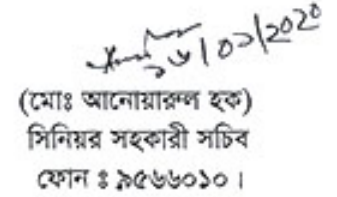 ১৬/০১/২০২০
(মোঃ আনোয়ারুল হক)
সিনিয়র সহকারী সচিব
ফোন ঃ ৯৫৬৬০১০।